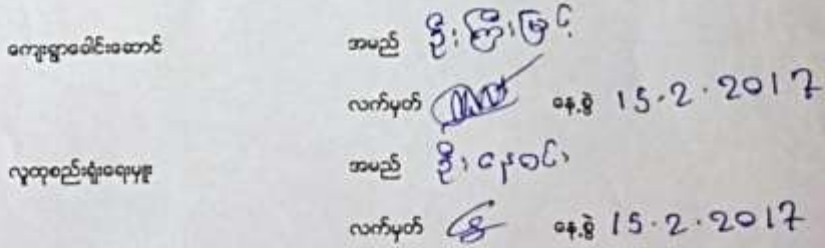 ကျေးရွာခေါင်းဆောင် အမည် ဦးကြီးမြင့်
လက်မှတ် နေ့စွဲ 15.2.2017
လူထုစည်းရုံးရေးမှူး အမည် ဦးနေဝင်း
လက်မှတ် နေ့စွဲ 15.2.2017